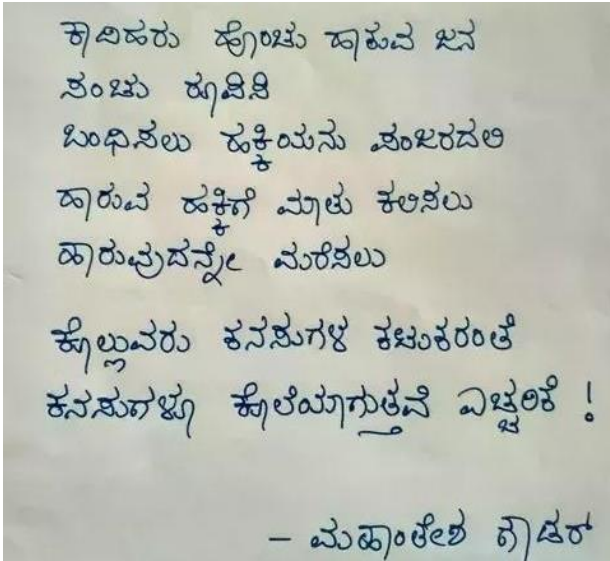 ಕಾದಿಹರು ಹೊಂಚು ಹಾಕುವ ಜನ
ಸಂಚು ರೂಪಿಸಿ
ಬಂಧಿಸಲು ಹಕ್ಕಿಯನು ಪಂಜರದಲಿ
ಹಾರುವ ಹಕ್ಕಿಗೆ ಮಾತು ಕಲಿಸಲು
ಹಾರುವುದನ್ನೇ ಮರೆಸಲು
ಕೊಲ್ಲುವರು ಕನಸುಗಳ ಕಟುಕರಂತೆ
ಕನಸುಗಳೂ ಕೊಲೆಯಾಗುತ್ತವೆ ಎಚ್ಚರಿಕೆ !
- ಮಹಾಂತೇಶ ಗೌಡರ್